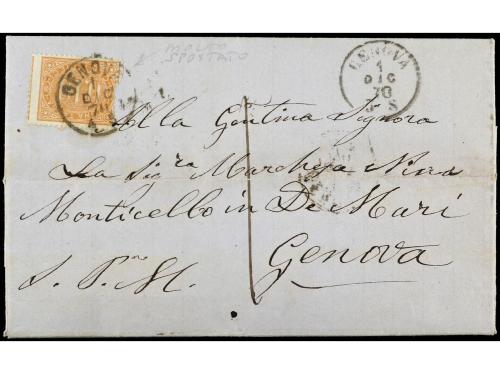 MOLTO
SPOSTATO
GENOVA
DIC
70
GENOVA
1
DIC
70
Alla Gentma Signora
La Sigra Marchesa Nina
Monticello in De Mari
Genova
S. P. M.